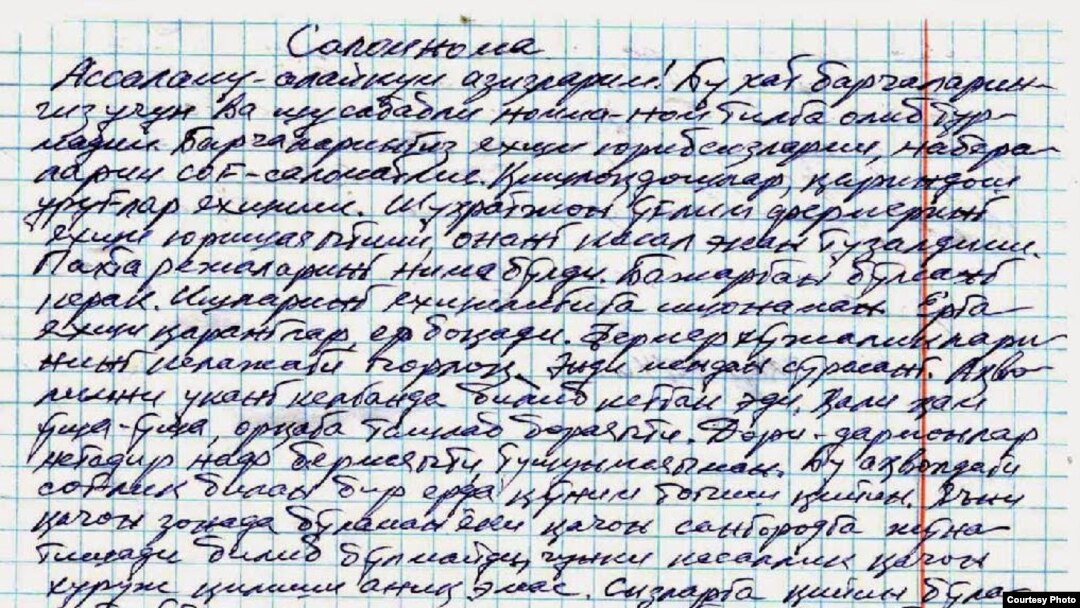 Саломнома
Ассалому-алайкум азизларим! Бу хат барчаларин-
гиз учун ва шу сабабли номма-ном тилга олиб ўтир-
мадим. Барчаларингиз яхши юрибсизларми, набера-
ларим соғ-саломатми. Қишлоқдошлар, қариндош
уруғлар яхшими. Шухратжон ўғлим фермеринг
яхши юришаяптими, онанг касал экан тузалдими.
Пахта режаларинг нима бўлди. Бажарган бўлсанг
керак. Ишларинг яхшилигига ишонаман. Ерга
яхши қаранглар, ер боқади. Фермер хўжаликлари-
нинг келажаги порлоқ. Энди мендан сўрасанг. Аҳво-
лимни уканг келганда билиб кетган эди. Ҳали ҳам
ўша-ўша, орқага ташлаб бораяпти. Дори-дармонлар
негадир наф бермаяпти тушунмаяпман. Бу аҳволдаги
соғлик билан бир ерда қўним топиш қийин. Яъни
қачон зонада бўламан ёки қачон сангородга жўна-
тишади билиб бўлмайди, чунки касаллик қачон
хуруж қилиши аниқ эмас. Сизларга қийин бўлса
Courtesy Photo